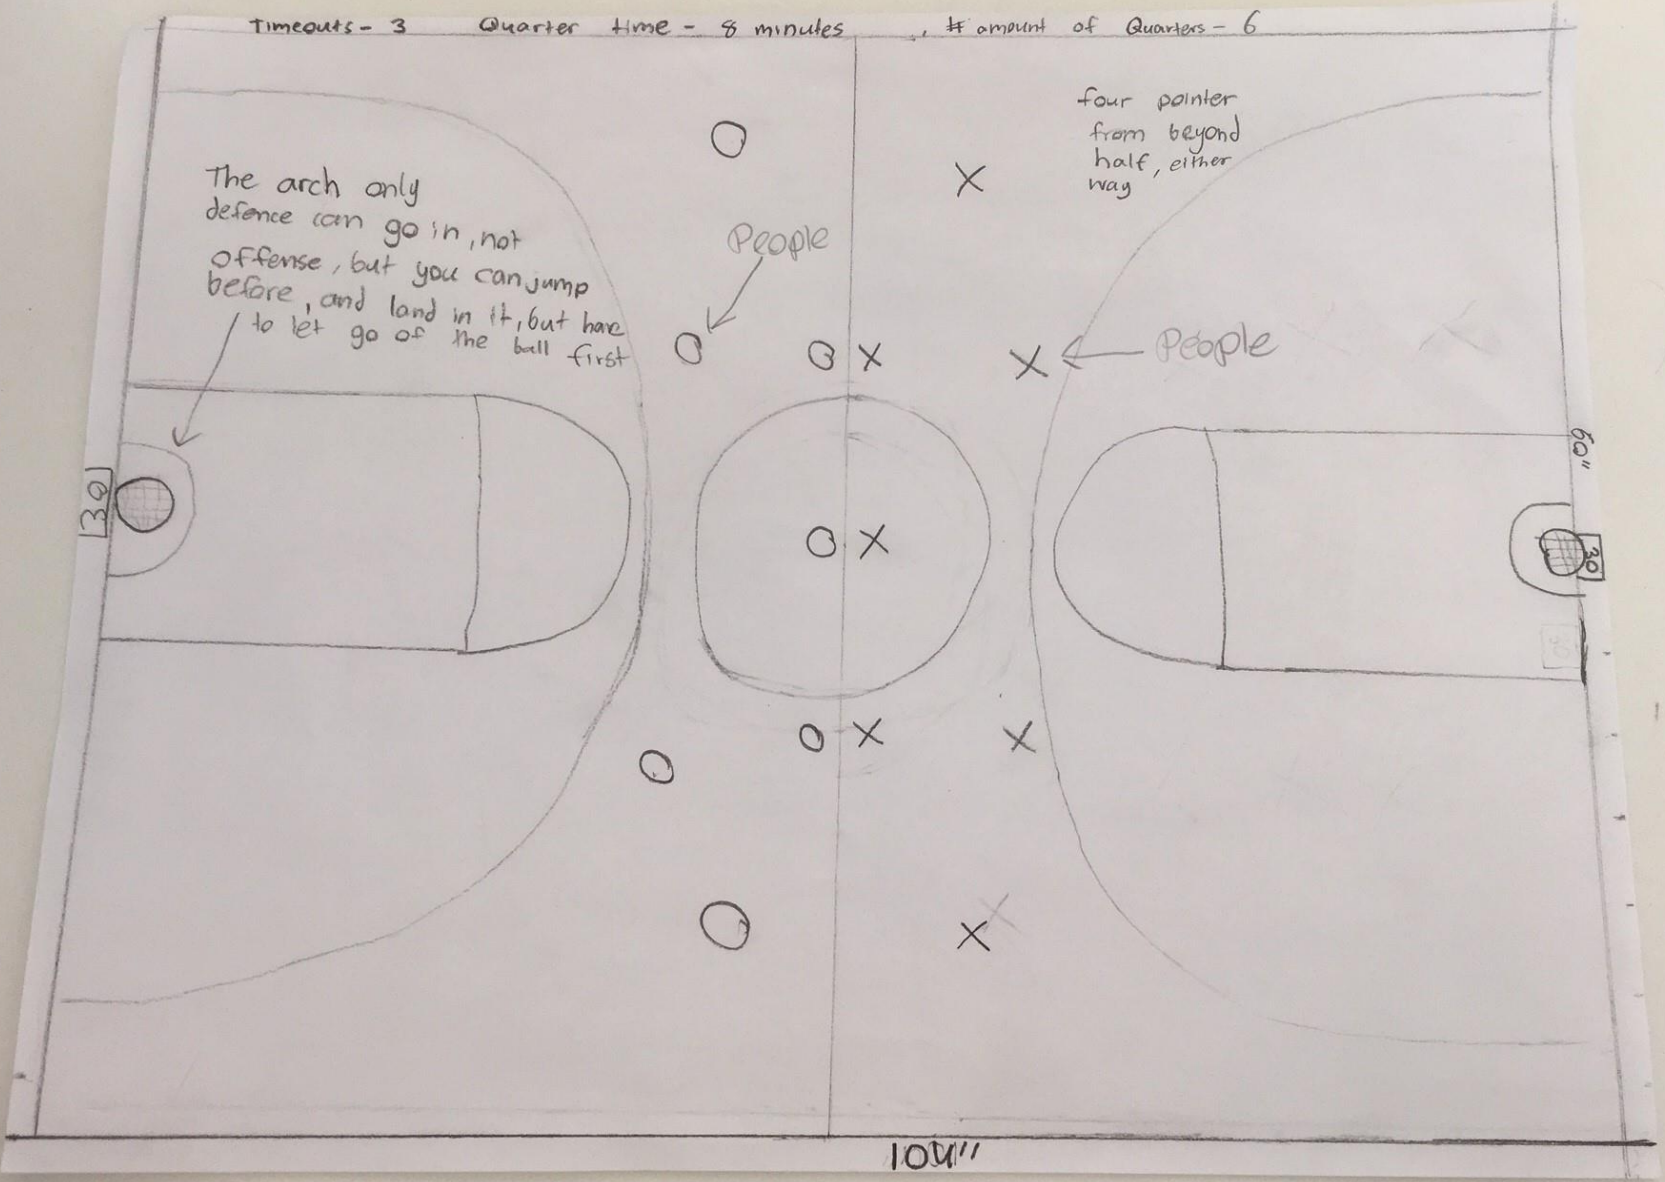 Timeouts - 3 Quarter time - 8 minutes , # amount of Quarters - 6
four pointer
from beyond
half, either
way
The arch only
defence can go in, not
offense, but you can jump
before, and land in it, but have
to let go of the ball first
People
People
30
60"
30
104"